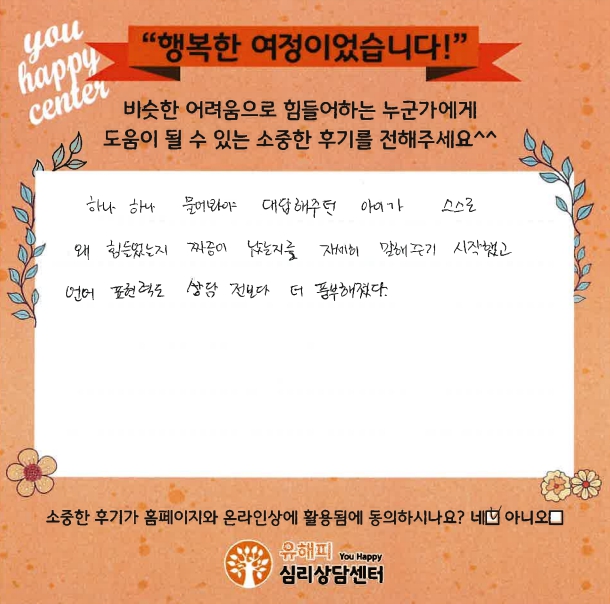 you
happy
center
“행복한 여정이었습니다!”
비슷한 어려움으로 힘들어하는 누군가에게
도움이 될 수 있는 소중한 후기를 전해주세요^^
하나 하나 물어봐야 대답해주던 아이가 스스로
왜 힘들었는지 짜증이 났는지를 자세히 말해주기 시작했고
언어 표현력도 상담 전보다 더 풍부해졌다.
소중한 후기가 홈페이지와 온라인상에 활용됨에 동의하시나요? 네☑ 아니오☐
유해피 You Happy
심리상담센터